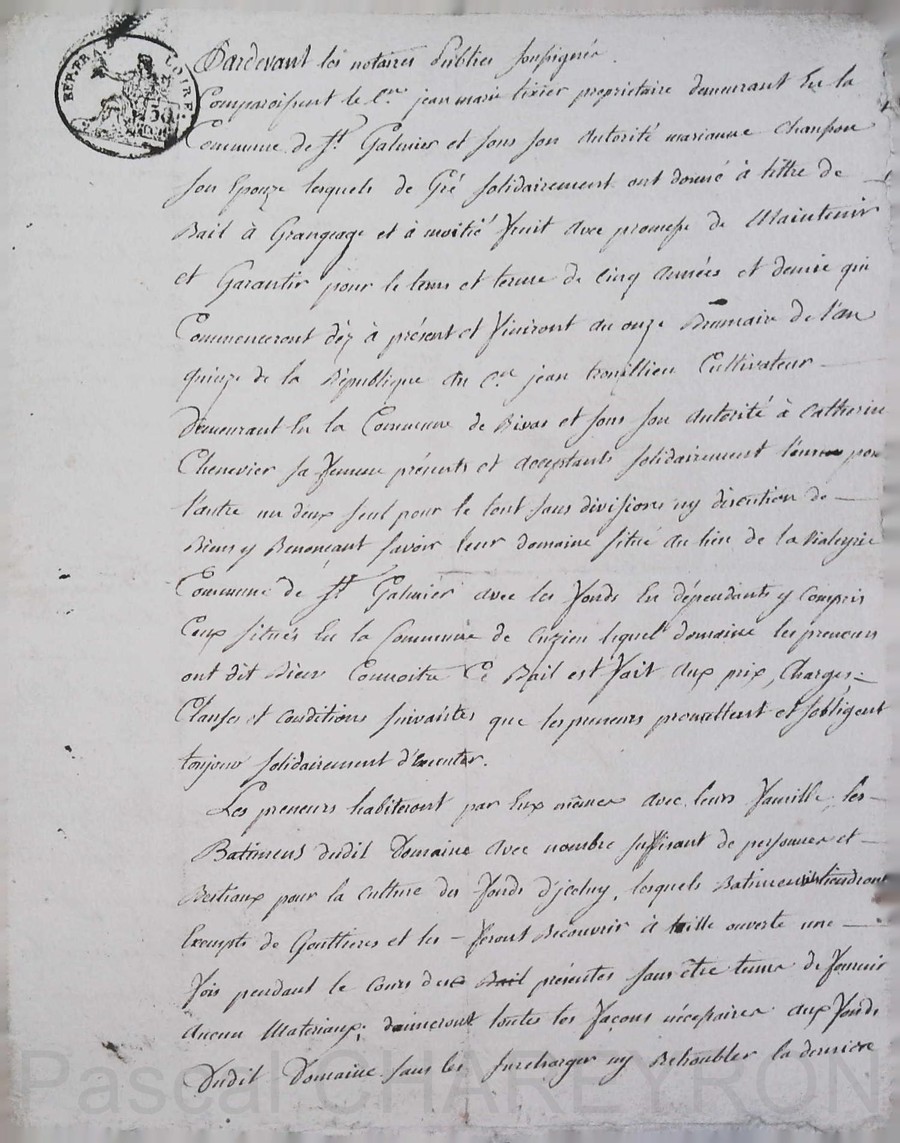 REP. FRA. LOIRE.
Pardevant les notaires Publics soussignés.
Comparoissent le C.en jean marie tixier propriétaire demeurant En la
Commune de S.t Galmier et sous son autorité marianne
son Epouze lesquels de Gré solidairement ont donné à tittre de
Bail à Grangeage et à moitié fruit avec promesse de Maintenir
et Garantir pour le tems et terme de cinq années et demie qui
Commenceront déz à présent et finiront au onze Brumaire de l'an
quinze de la République au C.en jean Cultivateur
demeurant En la Commune de Rivas et sous son autorité à Catherine
Chenevier sa femme présents et acceptants solidairement l'un pour
l'autre un deux seul pour le tout sans division ny discution de
Biens y Renonçant savoir leur domaine situé au lieu de la
Commune de S.t Galmier avec les fonds En dépendants y compris
Ceux situés En la Commune de Cuzieu lequel domaine les preneurs
ont dit Bien Connoitre Ce Bail est fait aux prix, Charges
Clauses et Conditions suivantes que les preneurs promettent et s'obligent
toujour solidairement d'éxecuter.
Les preneurs habiteront par Eux mêmes avec leurs famille les
Batimens dudit Domaine avec nombre suffisant de personnes et
Bestiaux pour la culture des fonds d'jceluy, lesquels Batimens ils tiendront
Exempts de Gouttieres et les feront Recouvrir à taille ouverte une
fois pendant le cours des Bail présentes sans être tenus de fournir
aucun Materiaux; donneront toutes les façons nécessaires aux fonds
Dudit Domaine sans les surcharger ny Rétroubler la dernière
Pascal CHAREYRON